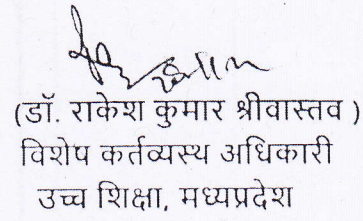 (डॉ. राकेश कुमार श्रीवास्तव )
विशेष कर्तव्यस्थ अधिकारी
उच्च शिक्षा, मध्यप्रदेश